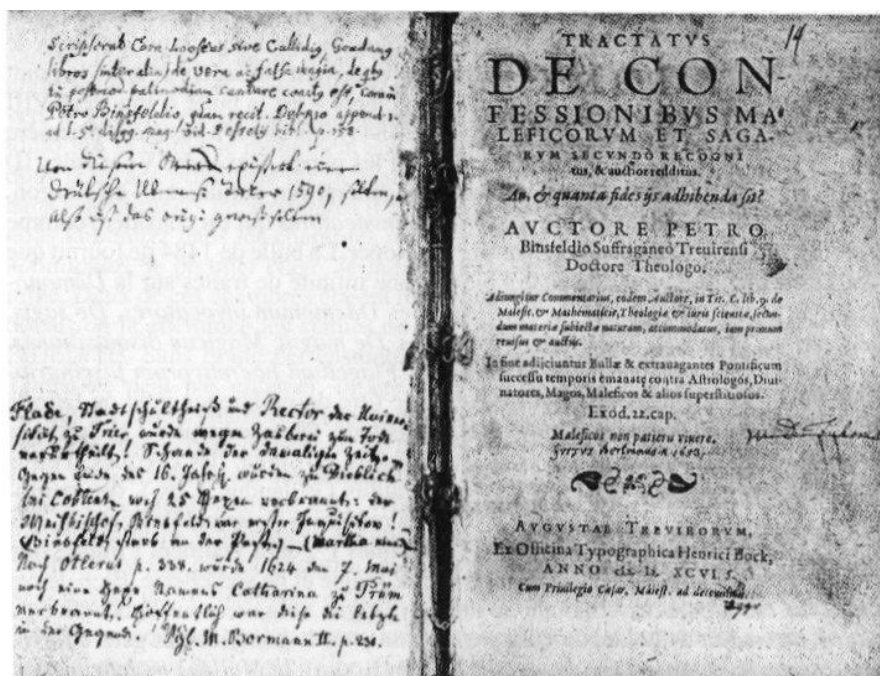 Scripserat Corn. Looseus sive Callidius, Goudanus
libros (inter alia) de vera ac falsa magia, de qbs
postmod palinodiam cantare coactus est, coram
Petro Binsfeldio, quam recit. Delrio append.
ad l. 5. disqq. mag.
Von diesem
deutsche 1590, selten,
also ist das
Flade, Stadtschultheiß und Rector der Univer-
sität zu Trier, wurde wegen Zauberei zum Tode
verurtheilt! Schande der damaligen Zeit.
Gegen Ende des 16. Jahrh. wurden zu Dieblich
bei Coblenz noch 25 Hexen verbrannt: der
Weihbischof Binsfeld war erster Inquisitor!
Binsfeld starb an der Pest
Nach p. 338. wurde 1624 den 7. Mai
noch eine Hexe Namens Catharina zu Prüm
verbrannt. Hoffentlich war diese die letzte
in der Gegend. Vgl. M. Bormann II. p. 231.
14
TRACTATVS
DE CON-
FESSIONIBVS MA-
LEFICORVM ET SAGA-
RVM SECVNDÒ RECOGNI
tus, & auctior redditus.
An, & quanta fides ijs adhibenda sit?
AVCTORE PETRO
Binsfeldio Suffraganeo Treuirensi
Doctore Theologo.
Adiungitur Commentarius, eodem Auctore, in Tit. C. lib. 9. de
Malefic. & Mathematicis, Theologiæ & iuris scientiæ, secun-
dum materiæ subiectæ naturam, accommodatus, iam primum
reuisus & auctus.
In fine adijciuntur Bullæ & extrauagantes Pontificum
successu temporis emanatę contra Astrologos, Diui-
natores, Magos, Maleficos & alios superstitiosos.
Exod. 22. cap.
Maleficos non patieru viuere.
AVGVSTAE TREVIRORVM,
Ex Officina Typographica Henrici Bock,
ANNO cIɔ. Iɔ. XCVI.
Cum Privilegio Cæsar. Maiest. ad decennium.